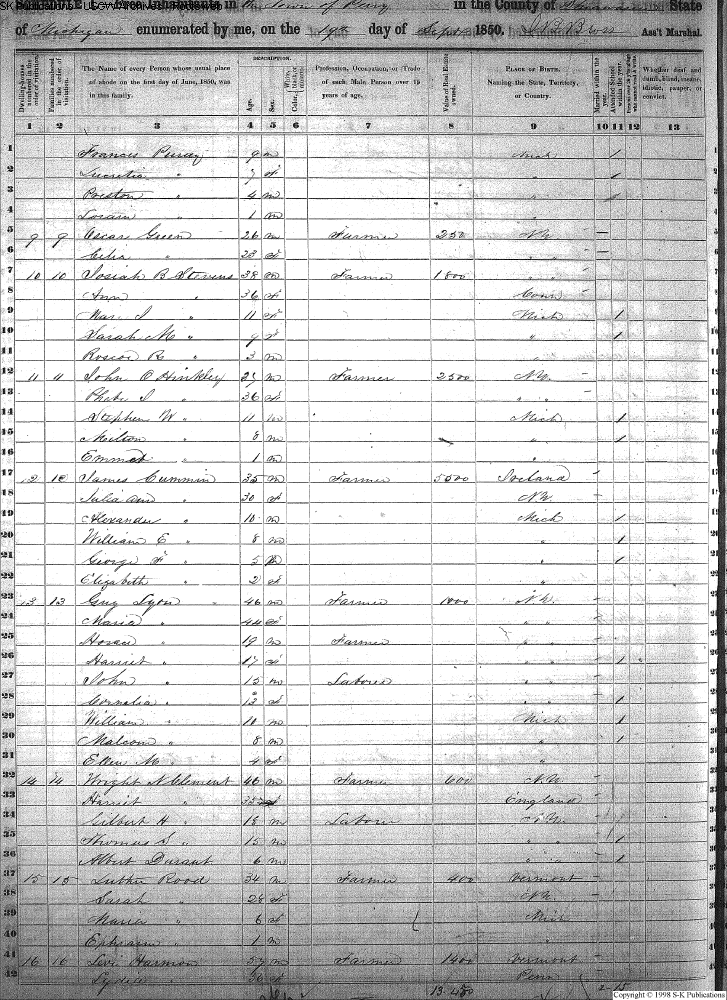 SCHEDULE I. Free Inhabitants in the Town of Perry in the County of Shiawassee State
of Michigan enumerated by me, on the 19th day of Sept 1850. Ass't Marshal.
DESCRIPTION.
Dwelling-houses numbered in the order of visitation.
Families numbered in the order of visitation.
The Name of every Person whose usual place of abode on the first day of June, 1850, was in this family.
Age.
Sex.
Color
Profession, Occupation, or Trade of each Male Person over 15 years of age.
Value of Real Estate owned.
PLACE OF BIRTH. Naming the State, Territory, or Country.
Married within the year.
Attended School within the year.
Whether deaf and dumb, blind, insane, idiotic, pauper, or convict.
1 2 3 4 5 6 7 8 9 10 11 12 13
1 Francis 9 m Mich /
2 Lucretia " 7 f " /
3 Preston " 4 m " /
4 " 1 m "
5 9 9 Oscar Green 26 m Farmer 250 N.Y. —
6 Celia " 23 f " " —
7 10 10 Josiah B Stevens 38 m Farmer 1800 " "
8 Ann " 36 f Conn
9 " 11 f Mich 1
10 Sarah M " 9 f " 1
11 Roscoe R " 3 m "
12 11 11 John O Hinkley 37 m Farmer 2500 N.Y.
13 Phebe " 36 f " "
14 Stephen W " 11 m Mich 1
15 Milton " 8 m " 1
16 Emmet " 1 m "
17 12 12 James Cummin 35 m Farmer 5500 Ireland
18 Julia Ann " 30 f N.Y.
19 Alexander " 10 m Mich 1
20 William E " 8 m " 1
21 George F " 5 m " 1
22 Elizabeth " 2 f "
23 13 13 Guy Lyon 46 m Farmer 1000 N.Y.
24 Maria " 44 f " "
25 Horace " 19 m Farmer " "
26 Harriet " 17 f " " 1
27 John " 15 m Laborer " "
28 Cornelia " 13 f " " 1
29 William " 10 m Mich 1
30 Malcom " 8 m " 1
31 Ellen M " 4 f "
32 14 14 Wright N Clement 46 m Farmer 600 N.Y.
33 Harriet " 35 f England
34 Gilbert H " 18 m Laborer N.Y.
35 Thomas S " 15 m " " 1
36 Albert Durant 6 m " " 1
37 15 15 Luther Rood 34 m Farmer 400 Vermont
38 Sarah " 28 f N.Y.
39 Maria " 6 f Mich
40 Ephraim " 1 m "
41 16 16 Levi Harmon 57 m Farmer 1400 Vermont
42 Lydia " 56 f Penn
13.450 2-15
Copyright © 1998 S-K Publications